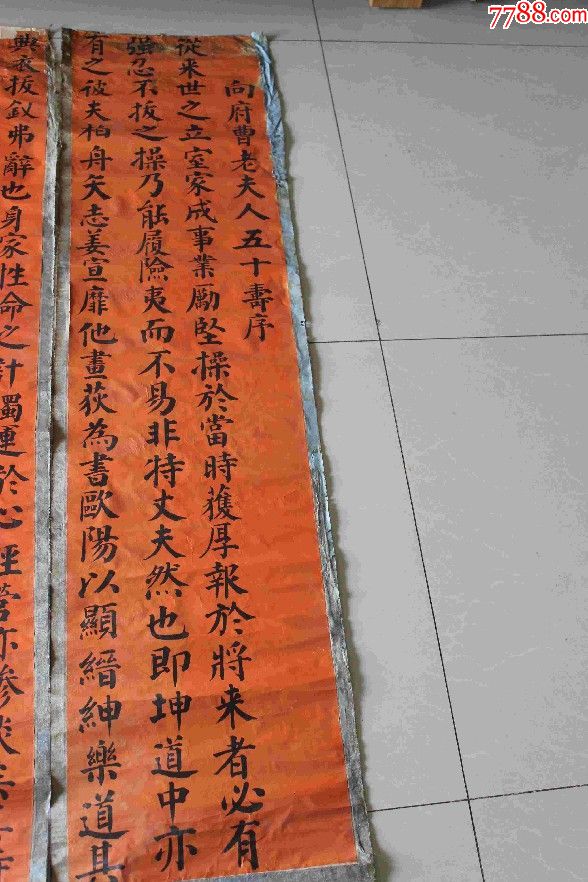 7788.com
向府曹老夫人五十壽序
從来世之立室家成事業勵堅操於當時獲厚報於將来者必有
強忍不拔之操乃能履險夷而不易非特丈夫然也即坤道中亦
有之彼夫柏舟矢志姜宣靡他畫荻為書歐陽以顯縉紳樂道其
典衣拔釵弗辭也身家性命之計獨運於心經營亦慘淡